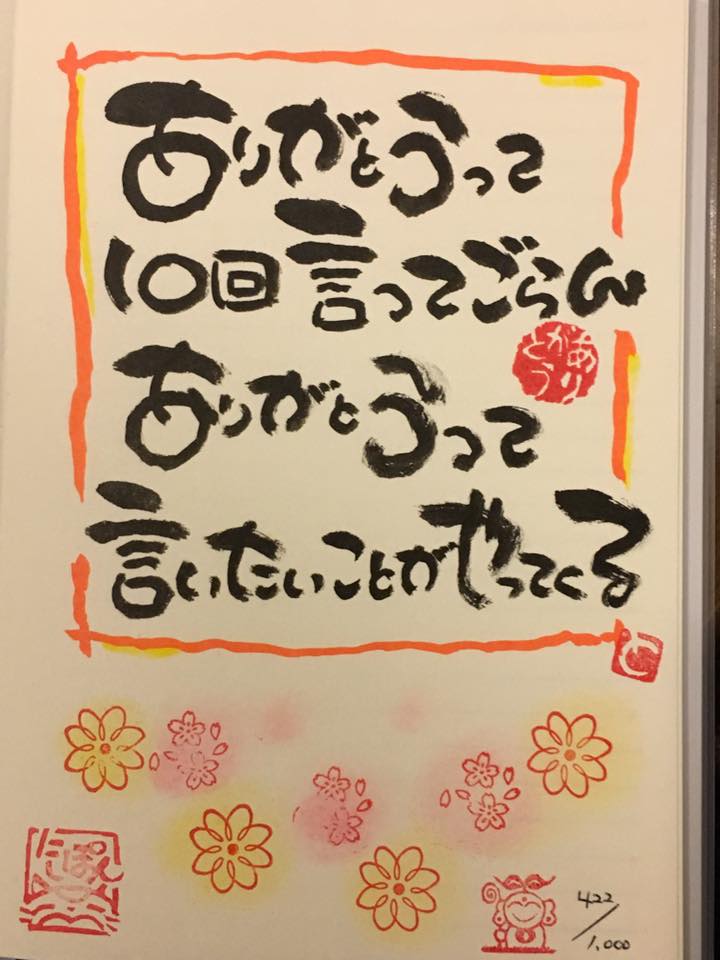 ありがとうって
10回言ってごらん
ありがとうって
言いたいことがやってくる
ありがとう
と
422/1,000